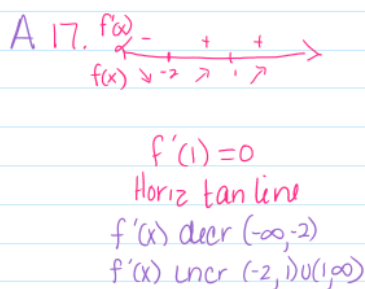 A 17. f'(x) - + +
f(x) ↘ -2 ↗ 1 ↗
f'(1) = 0
Horiz tan line
f'(x) decr (-∞,-2)
f'(x) incr (-2,1)∪(1,∞)